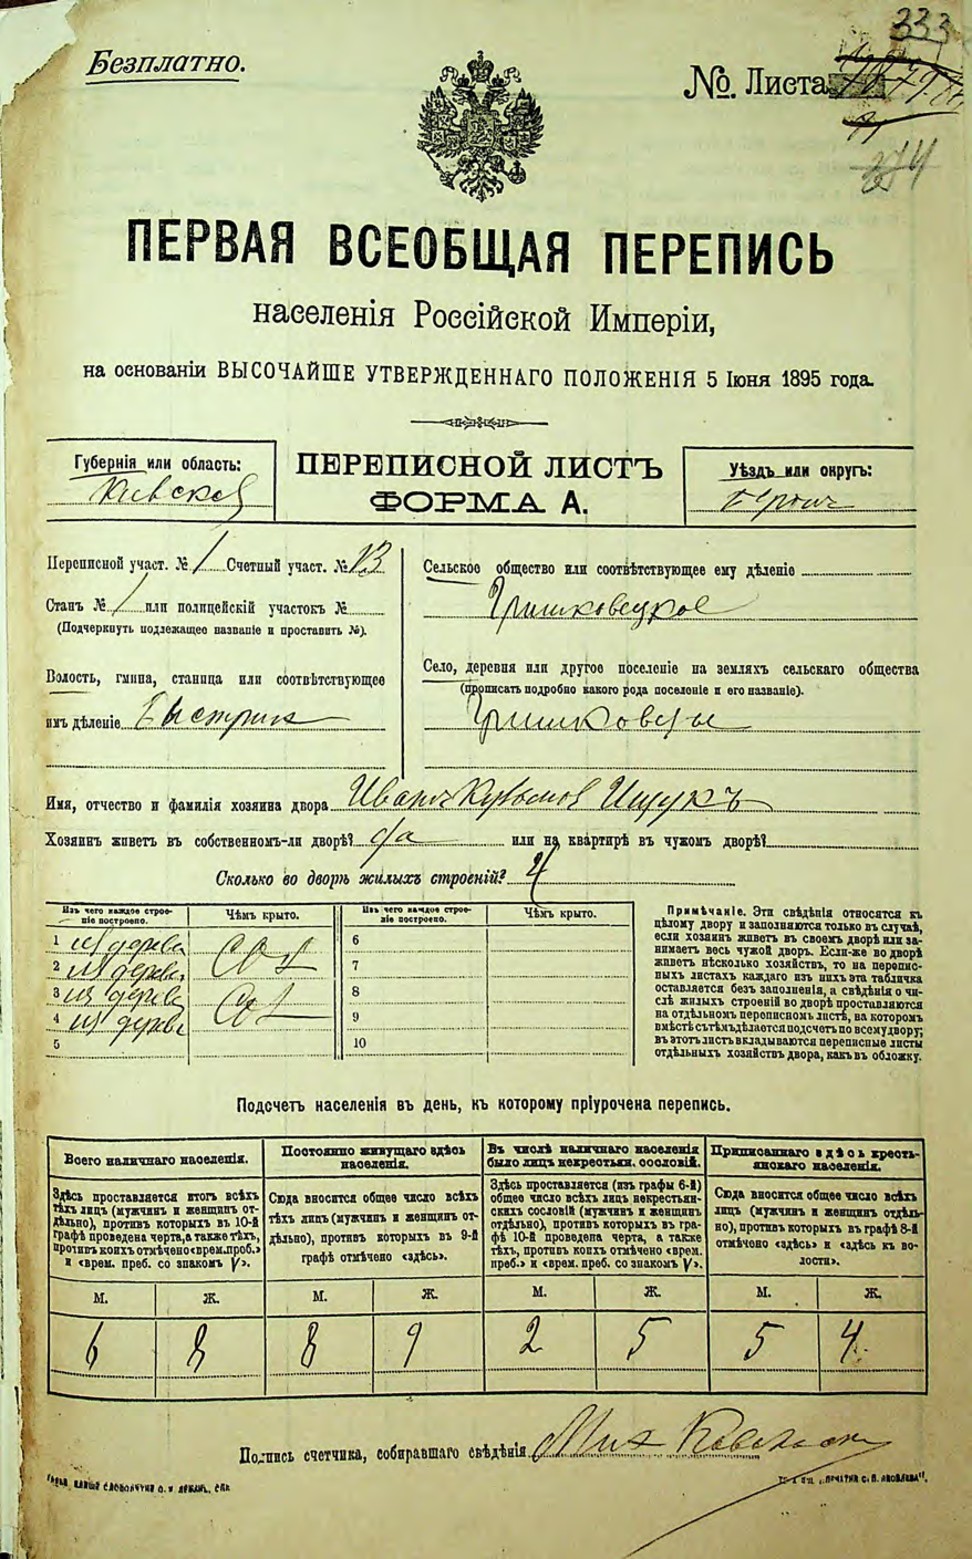 333
Безплатно.
№. Листа
274
ПЕРВАЯ ВСЕОБЩАЯ ПЕРЕПИСЬ
населенія Россійской Имперіи,
на основаніи ВЫСОЧАЙШЕ УТВЕРЖДЕННАГО ПОЛОЖЕНІЯ 5 Іюня 1895 года.
Губернія или область:
Кіевская
ПЕРЕПИСНОЙ ЛИСТЪ
ФОРМА А.
Уѣздъ или округъ:
Бердич
Переписной участ. № 1 Счетный участ. № 13
Станъ № 1 или полицейскій участокъ №
(Подчеркнуть подлежащее названіе и проставить №).
Волость, гмина, станица или соотвѣтствующее
имъ дѣленіе Быстрик
Сельское общество или соотвѣтствующее ему дѣленіе
Гришковецкое
Село, деревня или другое поселеніе на земляхъ сельскаго общества
(прописать подробно какого рода поселеніе и его названіе).
Гришковецы
Имя, отчество и фамилія хозяина двора Иванъ Кузьмов Ищукъ
Хозяинъ живетъ въ собственномъ-ли дворѣ? да или на квартирѣ въ чужомъ дворѣ?
Сколько во дворѣ жилыхъ строеній? 4
Изъ чего каждое строе-
ніе построено.
Чѣмъ крыто.
1 из дерева
2 из дерева
3 из дерева
4 из дерева
5
Изъ чего каждое строе-
ніе построено.
Чѣмъ крыто.
6
7
8
9
10
Примѣчаніе. Эти свѣдѣнія относятся къ
цѣлому двору и заполняются только въ случаѣ,
если хозяин живетъ въ своемъ дворѣ или за-
нимаетъ весь чужой дворъ. Если-же во дворѣ
живетъ нѣсколько хозяйствъ, то на перепис-
ныхъ листахъ каждаго изъ нихъ эта табличка
оставляется безъ заполненія, а свѣдѣнія о чи-
слѣ жилыхъ строеній во дворѣ проставляются
на отдѣльномъ переписномъ листѣ, на котором
вмѣстѣ съ тѣмъ дѣлается подсчетъ по всему двору;
въ этотъ листъ вкладываются переписные листы
отдѣльныхъ хозяйствъ двора, какъ въ обложку.
Подсчетъ населенія въ день, къ которому пріурочена перепись.
Всего наличнаго населенія.
Здѣсь проставляется итогъ всѣхъ
тѣхъ лицъ (мужчинъ и женщинъ от-
дѣльно), противъ которыхъ въ 10-й
графѣ проведена черта, а также тѣхъ,
противъ коихъ отмѣчено «врем. проб.»
и «врем. преб. со знакомъ V».
М. Ж.
6 8
Постоянно живущаго здѣсь
населенія.
Сюда вносится общее число всѣхъ
тѣхъ лицъ (мужчинъ и женщинъ от-
дѣльно), противъ которыхъ въ 9-й
графѣ отмѣчено «здѣсь».
М. Ж.
8 9
Въ числѣ наличнаго населенія
было лицъ некрестьян. сословій.
Здѣсь проставляется (изъ графы 6-й)
общее число всѣхъ лицъ некрестьян-
скихъ сословій (мужчинъ и женщинъ
отдѣльно), противъ которыхъ въ гра-
фѣ 10-й проведена черта, а также
тѣхъ, противъ коихъ отмѣчено «врем.
преб.» и «врем. преб. со знакомъ V».
М. Ж.
2 5
Приписаннаго здѣсь кресть-
янскаго населенія.
Сюда вносится общее число всѣхъ
лицъ (мужчинъ и женщинъ отдѣль-
но), противъ которыхъ въ графѣ 8-й
отмѣчено «здѣсь» и «здѣсь къ во-
лости».
М. Ж.
5 4
Подпись счетчика, собиравшаго свѣдѣнія Мих